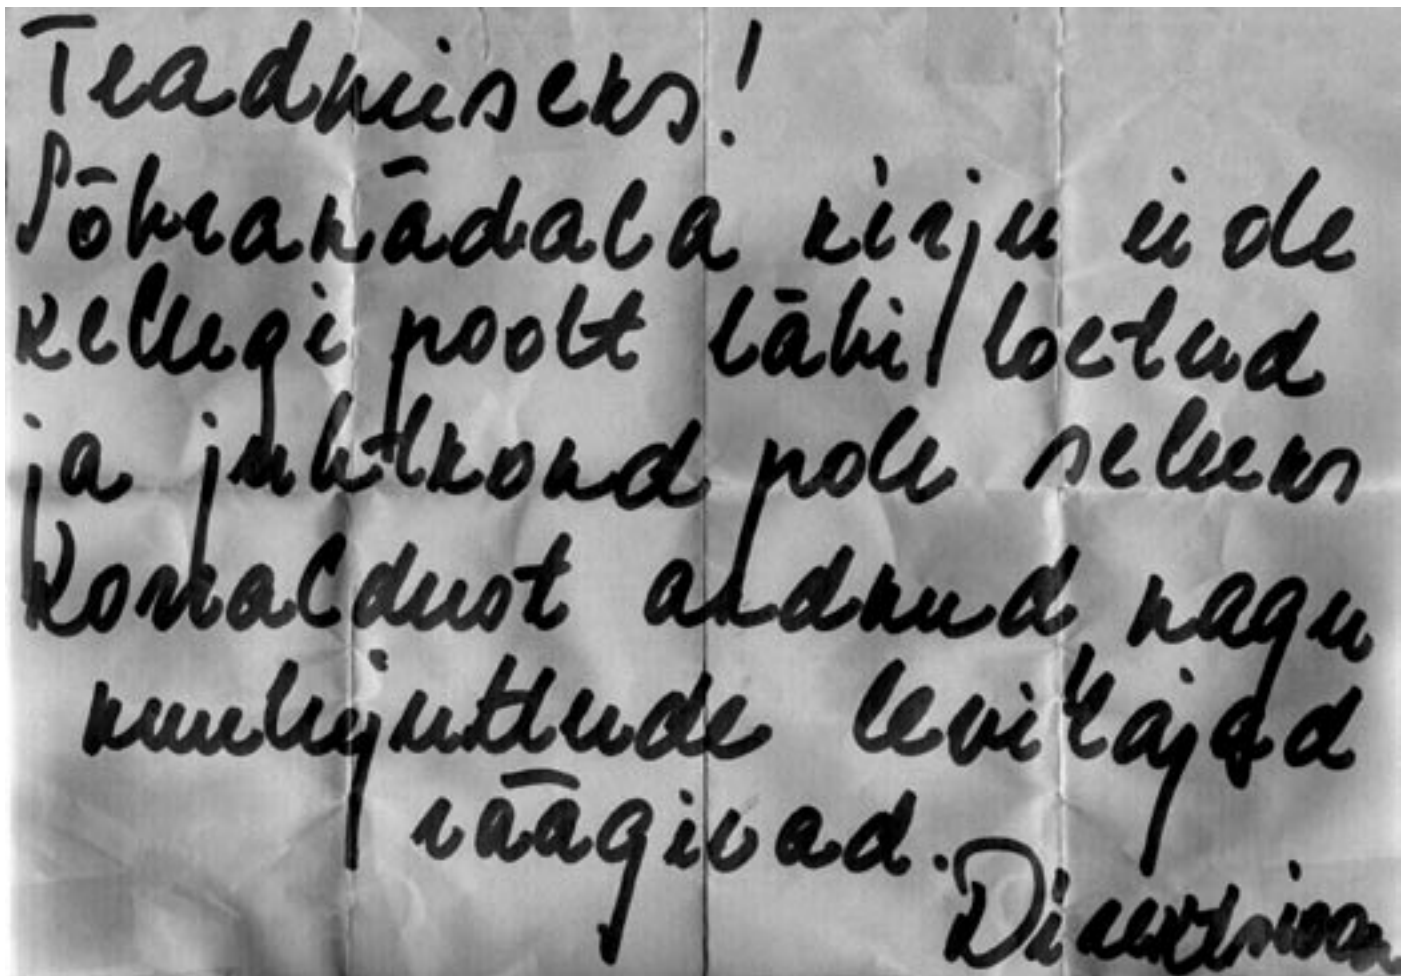 Teadmiseks!
Sõbranädala kirju ei ole
kellegi poolt läbi loetud
ja juhtkond pole selleks
korraldust andnud nagu
kuulujuttude levitajad
räägivad.
Direktsioon